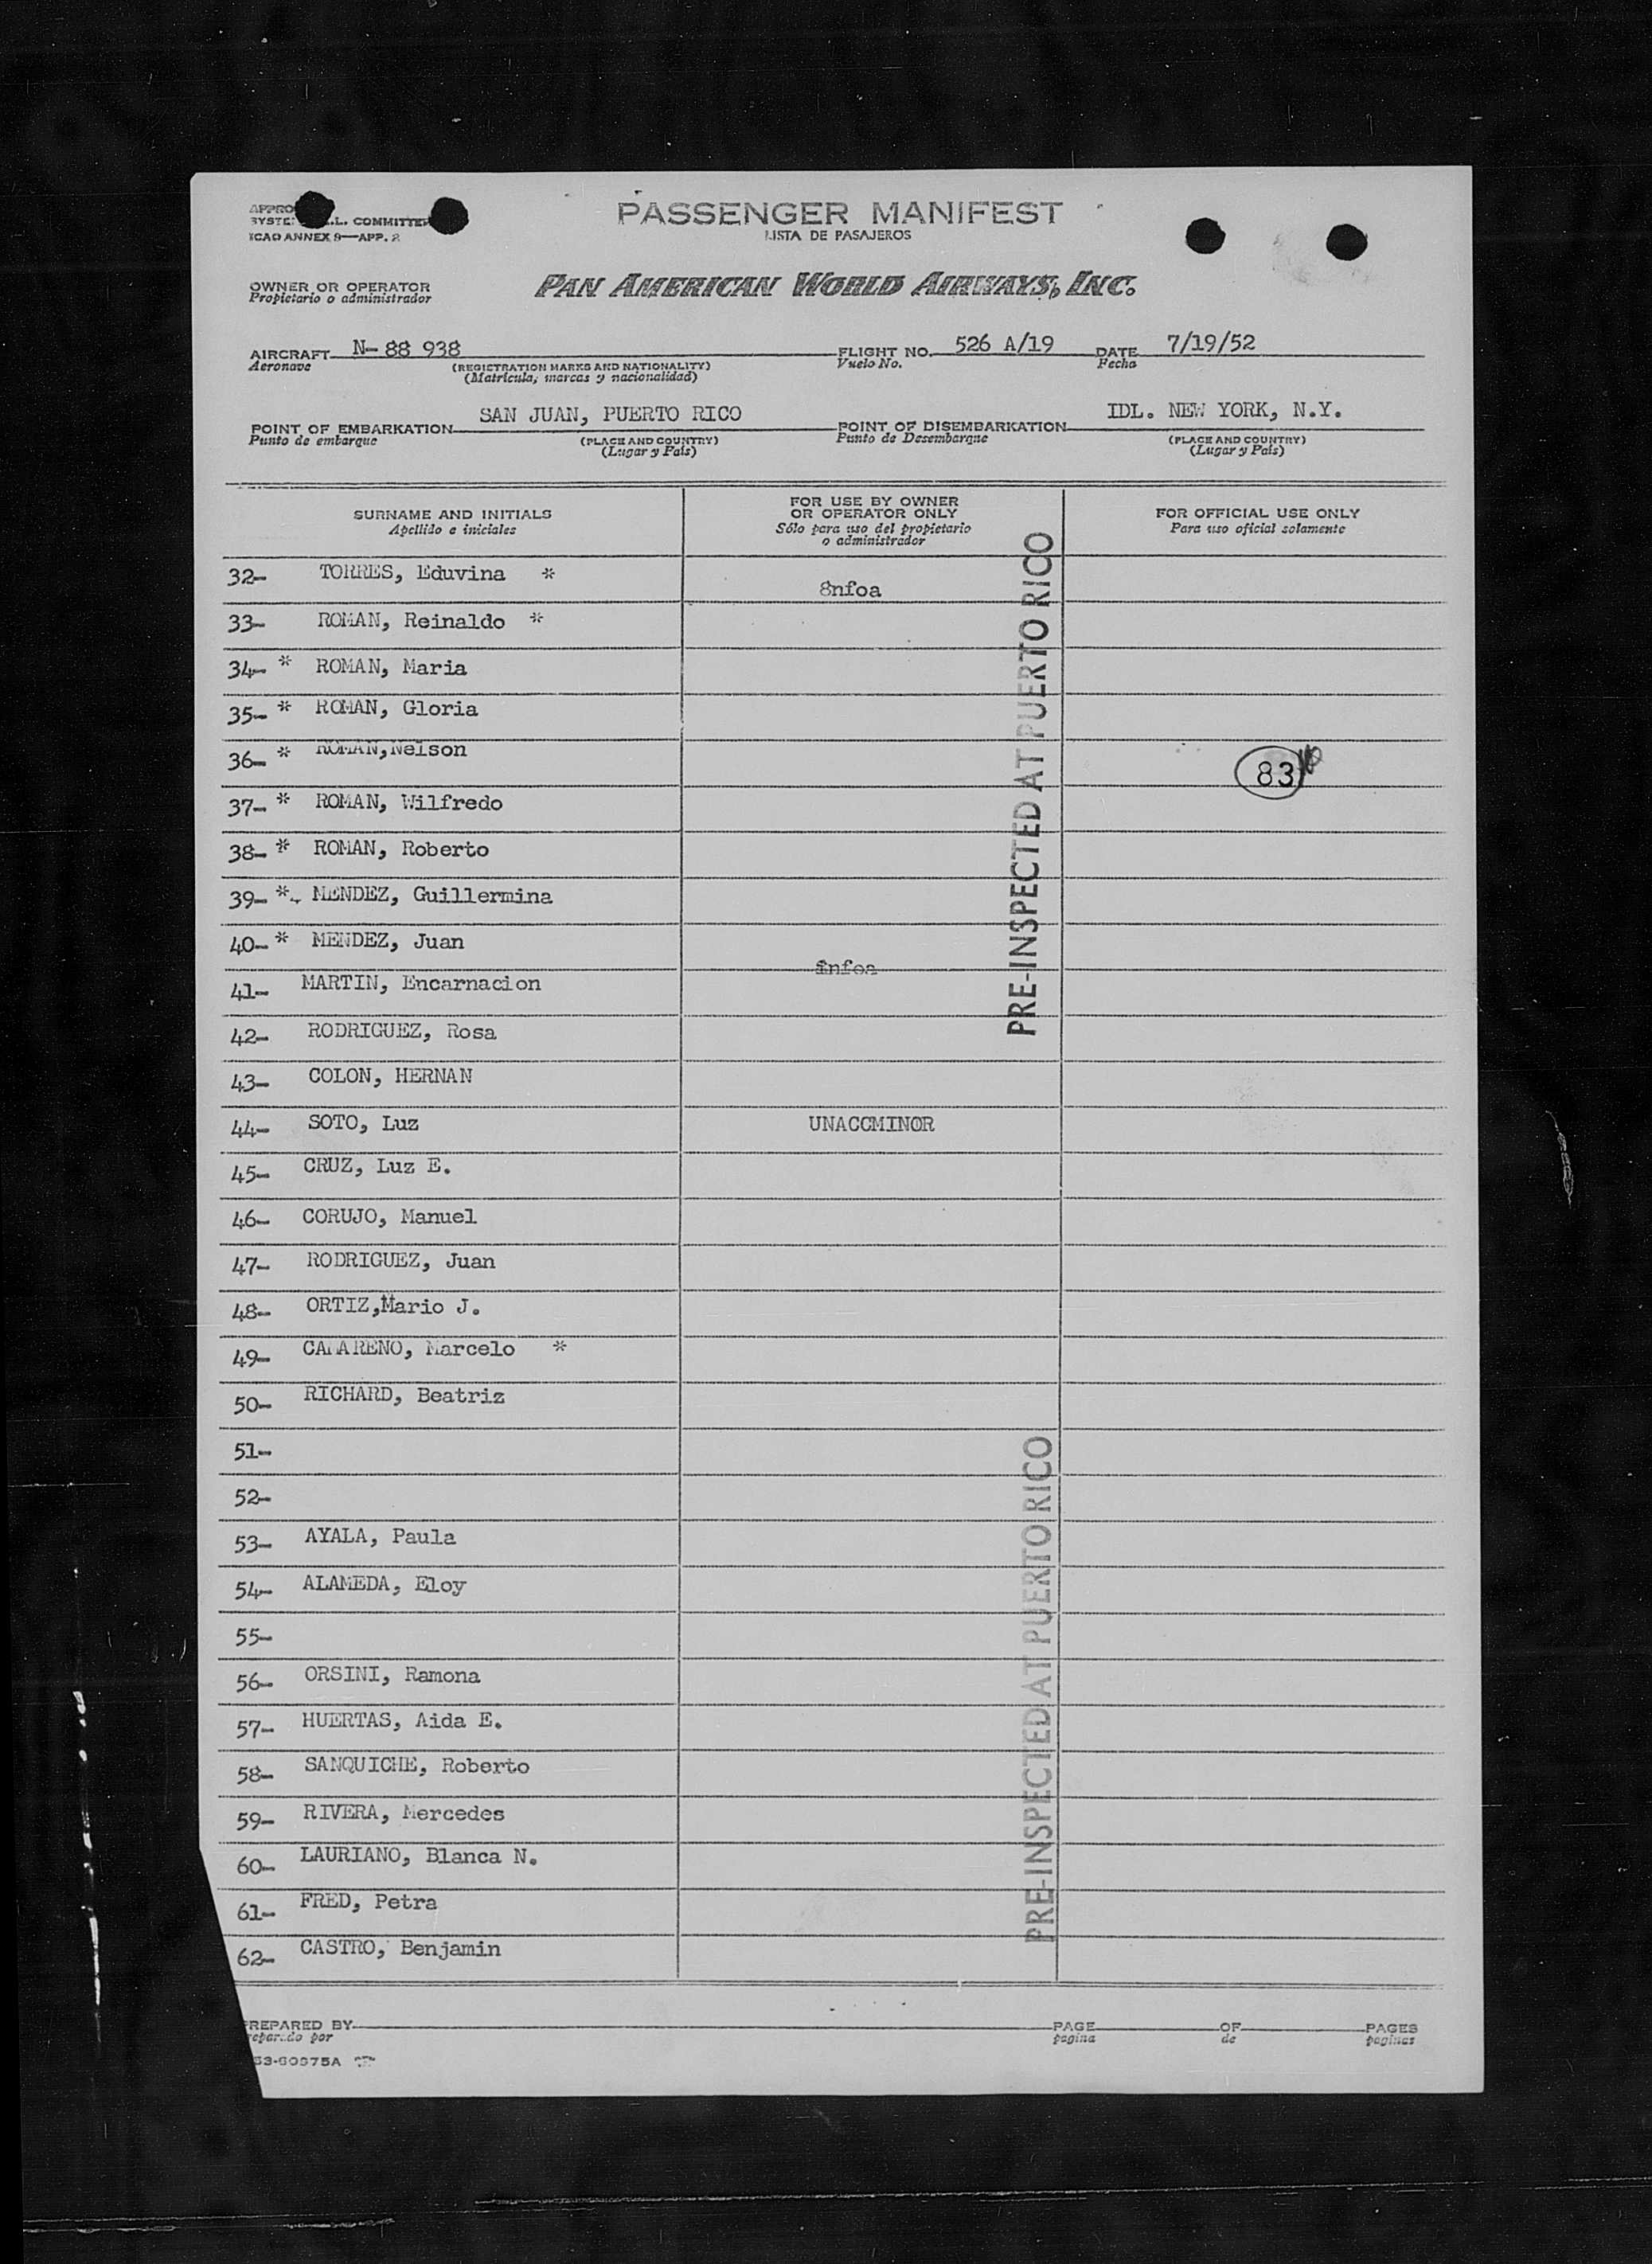 PASSENGER MANIFEST
LISTA DE PASAJEROS
L. COMMITTEE
ICAO ANNEX 9—APP. 2
OWNER OR OPERATOR
Propietario o administrador
PAN AMERICAN WORLD AIRWAYS, INC.
AIRCRAFT N- 88 938 FLIGHT NO. 526 A/19 DATE 7/19/52
Aeronave (REGISTRATION MARKS AND NATIONALITY) Vuelo No. Fecha
(Matrícula, marcas y nacionalidad)
POINT OF EMBARKATION SAN JUAN, PUERTO RICO POINT OF DISEMBARKATION IDL. NEW YORK, N.Y.
Punto de embarque (PLACE AND COUNTRY) Punto de Desembarque (PLACE AND COUNTRY)
(Lugar y País) (Lugar y País)
SURNAME AND INITIALS
Apellido e iniciales
FOR USE BY OWNER
OR OPERATOR ONLY
Sólo para uso del propietario
o administrador
FOR OFFICIAL USE ONLY
Para uso oficial solamente
32- TORRES, Eduvina * 8nfoa
33- ROMAN, Reinaldo *
34- * ROMAN, Maria
35- * ROMAN, Gloria
36- * ROMAN,Nelson 83
37- * ROMAN, Wilfredo
38- * ROMAN, Roberto
39- * MENDEZ, Guillermina
40- * MENDEZ, Juan
41- MARTIN, Encarnacion
42- RODRIGUEZ, Rosa
43- COLON, HERNAN
44- SOTO, Luz UNACCMINOR
45- CRUZ, Luz E.
46- CORUJO, Manuel
47- RODRIGUEZ, Juan
48- ORTIZ,Mario J.
49- CAMARENO, Marcelo *
50- RICHARD, Beatriz
51-
52-
53- AYALA, Paula
54- ALAMEDA, Eloy
55-
56- ORSINI, Ramona
57- HUERTAS, Aida E.
58- SANQUICHE, Roberto
59- RIVERA, Mercedes
60- LAURIANO, Blanca N.
61- FRED, Petra
62- CASTRO, Benjamin
PRE-INSPECTED AT PUERTO RICO
PRE-INSPECTED AT PUERTO RICO
PREPARED BY PAGE OF PAGES
por pagina de paginas